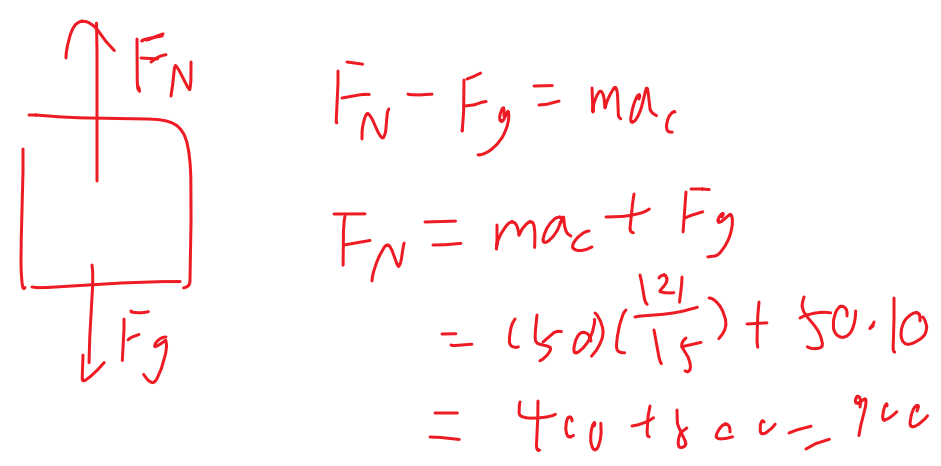 F_N
F_N - F_g = ma_c
F_N = ma_c + F_g
= (50)(121/15) + 50·10
F_g
= 400 + 500 = 900